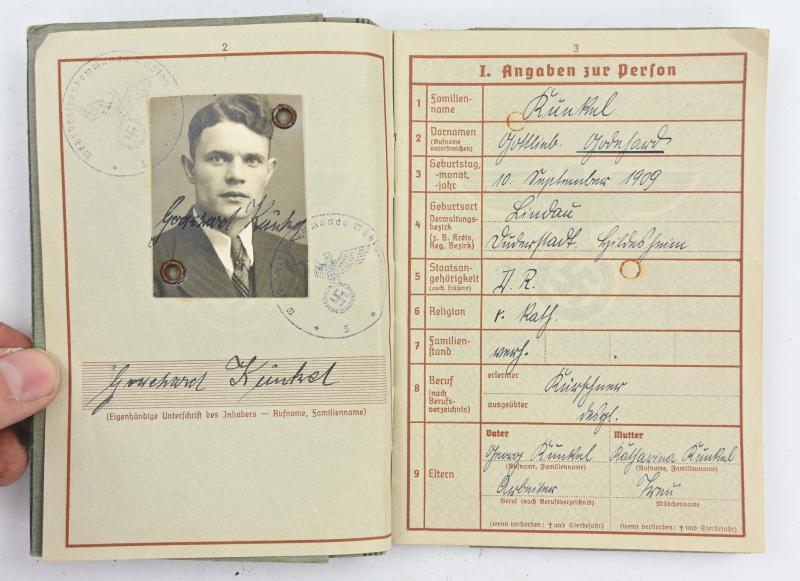 2
Künkel
(Eigenhändige Unterschrift des Inhabers — Rufname, Familienname)
3
I. Angaben zur Person
1 Familien-
name
Künkel
2 Vornamen
(Rufname
unterstreichen)
Gottlieb. Godehard
3 Geburtstag,
-monat,
-jahr
10. September 1909
4 Geburtsort
Verwaltungs-
bezirk
(z. B. Kreis,
Reg. Bezirk)
Lindau
Duderstadt. Hildesheim
5 Staatsan-
gehörigkeit
(auch frühere)
D. R.
6 Religion
r. kath.
7 Familien-
stand
verh.
8 Beruf
(nach
Berufs-
verzeichnis)
erlernter
Kürschner
ausgeübter
desgl.
9 Eltern
Vater
Georg Künkel
(Rufname, Familienname)
Arbeiter
Beruf (nach Berufsverzeichnis)
(wenn verstorben: † und Sterbejahr)
Mutter
Katharina Künkel
(Rufname, Familienname)
Mädchenname
(wenn verstorben: † und Sterbejahr)